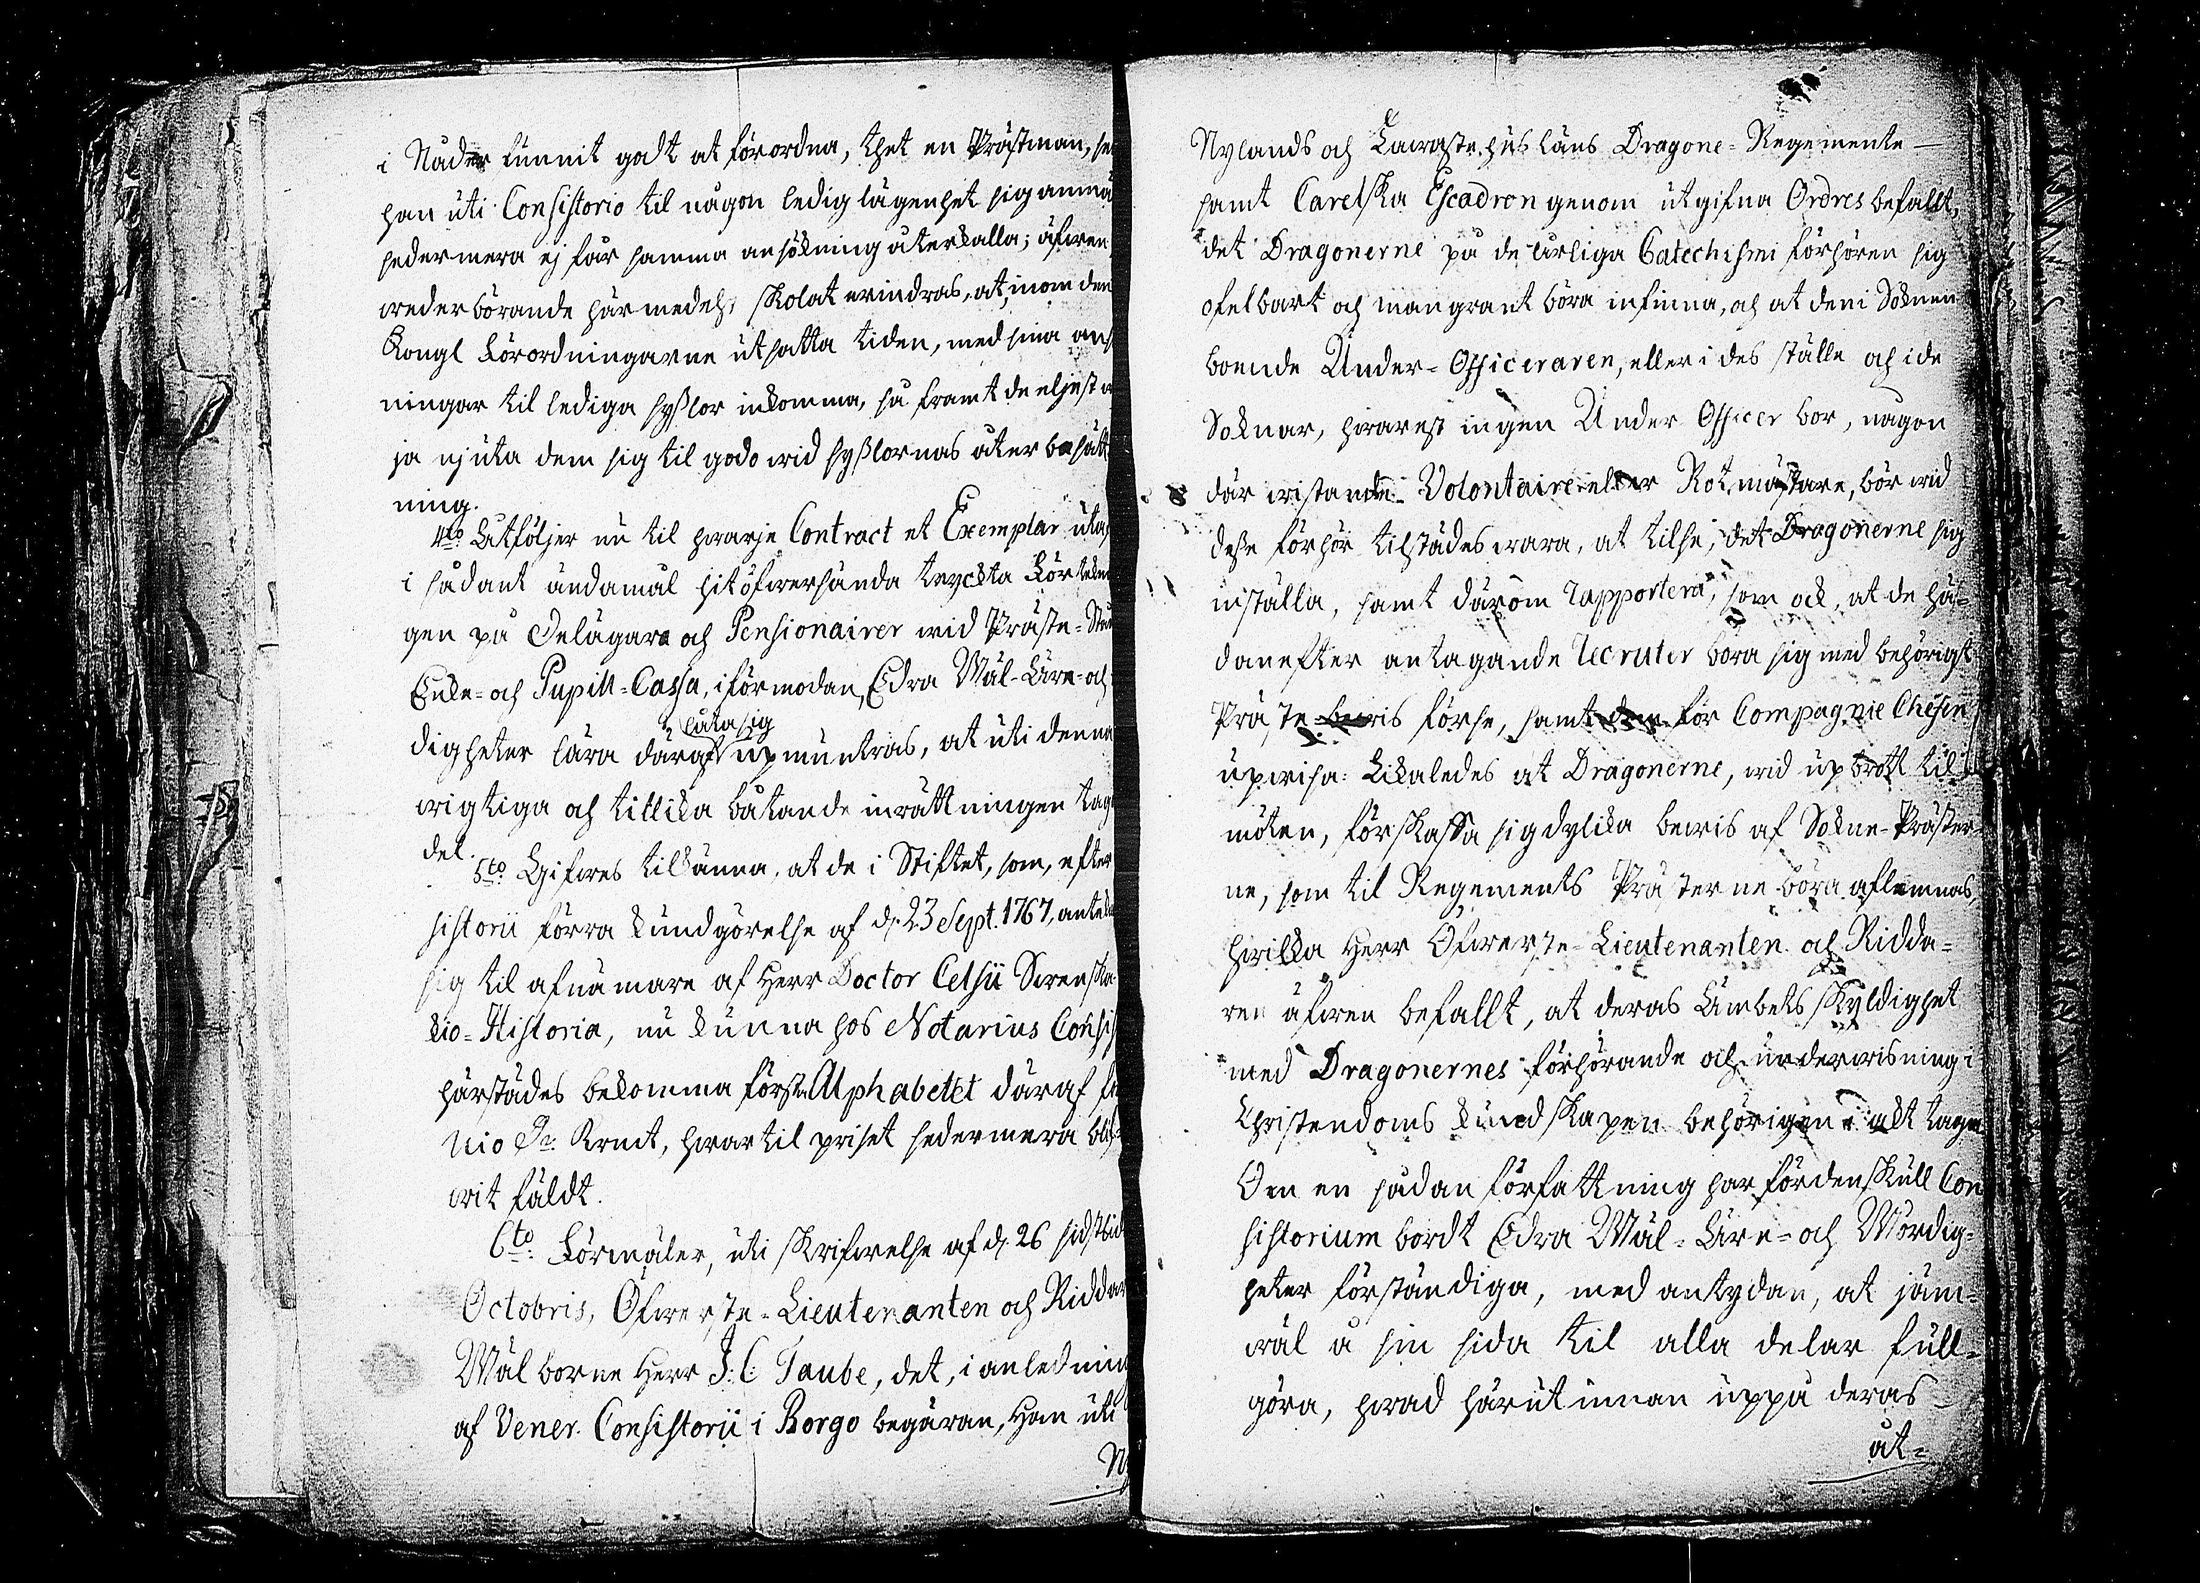 i Nåder funnit godt at förordna, thet en Prästman, se
han uti Consistorio til någon ledig lägenhet sig anmä
sedermera ej får samma ansökning återkalla; äfwen
wederbörande härmedelst skolat erindras, at, inom den
Kongl Förordningarne utsatta tiden, med sina ans
ningar til lediga sysslor inkomma, så framt de eljest w
ja njuta dem sig til godo wid sysslornas återbesätt
ning.
4to Utföljer nu til hwarje Contract et Exemplar utaf
i sådant ändamål hitöfwersända tryckta Förtekn
gen på Delägare och Pensionairer wid Präste-
Enke- och Pupill-Cassa, i förmodan, Edra Wäl-Äre- och
låta sig
digheter lära däraf upmuntras, at uti denna
wigtiga och tillika båtande inrättningen tag
del.
5to Gifwes tilkänna, at de i Stiftet, som, efter
sistorii förra kundgörelse af d. 23 Sept. 1767, antekn
sig til afnämare af Herr Doctor Celsii Swenska
kio-Historia, nu kunna hos Notarius Consis
härstädes bekomma första Alphabetet däraf
nio Dr. Kmt, hwartil priset sedermera blif
wit fäldt.
6to Förmäler, uti skrifwelse af d. 26 sidstled
Octobris, Öfwerste-Lieutenanten och Riddar
Wälborne Herr J: C: Taube, det, i anlednin
af Vener. Consistorii i Borgo begäran, Han uti
Ny
Nylands och Tawastehus Läns Dragone-Regemente
samt Carelska Escadron genom utgifna Ordres befallt,
det Dragonerne på de årliga Catechismi förhören sig
ofelbart och mangrant böra infinna, och at den i Soknen
boende Under-Officeraren, eller i des ställe och i de
Soknar, hwarest ingen Under Officer bor, någon
där wistande Volontaire eller Rotmästare, bör wid
desse förhör tilstädes wara, at tilse, det Dragonerne sig
inställa, samt därom rapportera, som ock, at de hä-
danefter antagande recruter böra sig med behörigt
Prästebewis förse, samt för Compagnie Chefen
upwisa: Likaledes at Dragonerne, wid upbrott til
möten, förskaffa sig dylika bewis af Sokne-Präster-
ne, som til Regements Prästerne böra aflemnas,
hwilka Herr Öfwerste-Lieutenanten och Ridda-
ren äfwen befallt, at deras Ämbets skyldighet
med Dragonernes förhörande och underwisning i
Christendoms kundskapen behörigen i akt taga
Om en sådan författning har fördenskull Con
sistorium bordt Edra Wäl-Äre- och Wördig-
heter förständiga, med antydan, at jäm-
wäl å sin sida til alla delar full-
göra, hwad härutinnan uppå deras
åt-